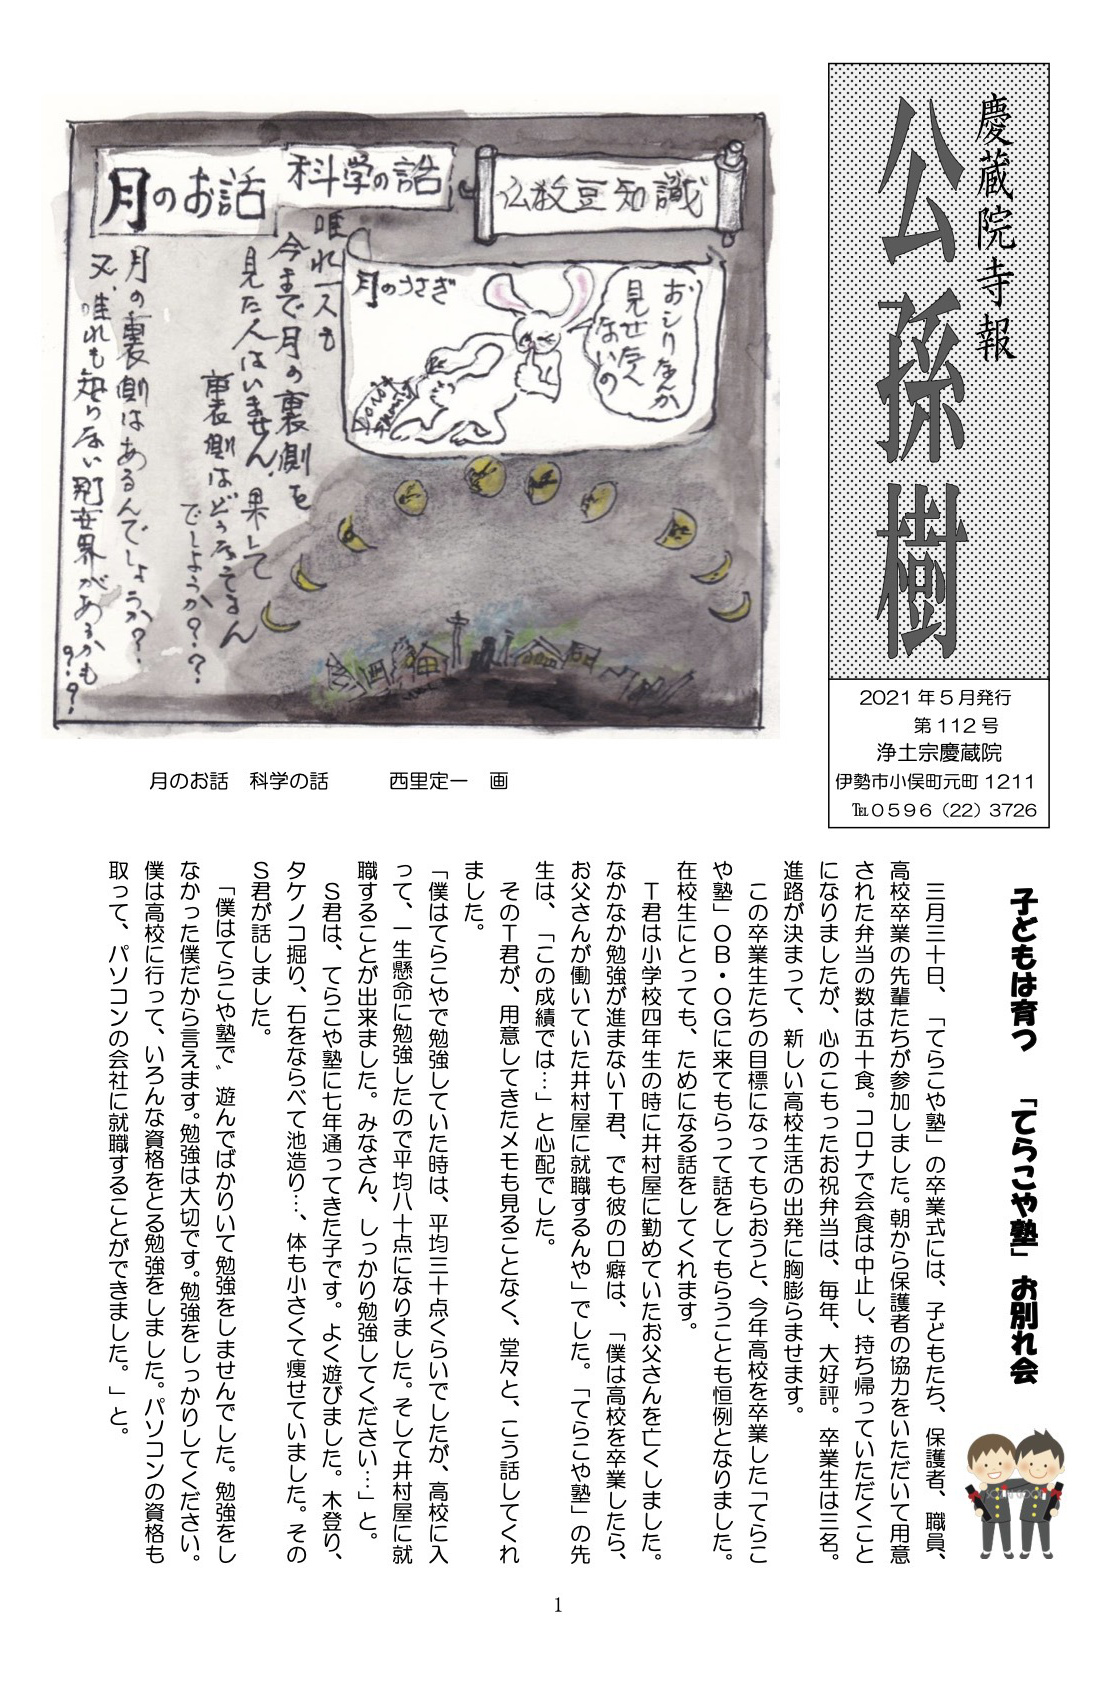 慶蔵院寺報
公孫樹
2021年5月発行
第112号
浄土宗慶蔵院
伊勢市小俣町元町1211
℡0596（22）3726
仏教豆知識
科学の話
月のお話
おしりなんか
見せたく
ないの
月のうさぎ
唯れ一人も
今まで月の裏側を
見た人はいません。果して
裏側はどうなってるん
でしょうか？？
月の裏側はあるんでしょうか？
又、唯れも知らない別世界があるかも
？？
月のお話　科学の話　　　西里定一　画
子どもは育つ　「てらこや塾」お別れ会
三月三十日、「てらこや塾」の卒業式には、子どもたち、保護者、職員、
高校卒業の先輩たちが参加しました。朝から保護者の協力をいただいて用意
された弁当の数は五十食。コロナで会食は中止し、持ち帰っていただくこと
になりましたが、心のこもったお祝弁当は、毎年、大好評。卒業生は三名。
進路が決まって、新しい高校生活の出発に胸膨らませます。
この卒業生たちの目標になってもらおうと、今年高校を卒業した「てらこ
や塾」ＯＢ・ＯＧに来てもらって話をしてもらうことも恒例となりました。
在校生にとっても、ためになる話をしてくれます。
Ｔ君は小学校四年生の時に井村屋に勤めていたお父さんを亡くしました。
なかなか勉強が進まないＴ君、でも彼の口癖は、「僕は高校を卒業したら、
お父さんが働いていた井村屋に就職するんや」でした。「てらこや塾」の先
生は、「この成績では…」と心配でした。
そのＴ君が、用意してきたメモも見ることなく、堂々と、こう話してくれ
ました。
「僕はてらこやで勉強していた時は、平均三十点くらいでしたが、高校に入
って、一生懸命に勉強したので平均八十点になりました。そして井村屋に就
職することが出来ました。みなさん、しっかり勉強してください…」と。
Ｓ君は、てらこや塾に七年通ってきた子です。よく遊びました。木登り、
タケノコ掘り、石をならべて池造り…、体も小さくて痩せていました。その
Ｓ君が話しました。
「僕はてらこや塾で〟遊んでばかりいて勉強をしませんでした。勉強をし
なかった僕だから言えます。勉強は大切です。勉強をしっかりしてください。
僕は高校に行って、いろんな資格をとる勉強をしました。パソコンの資格も
取って、パソコンの会社に就職することができました。」と。
1